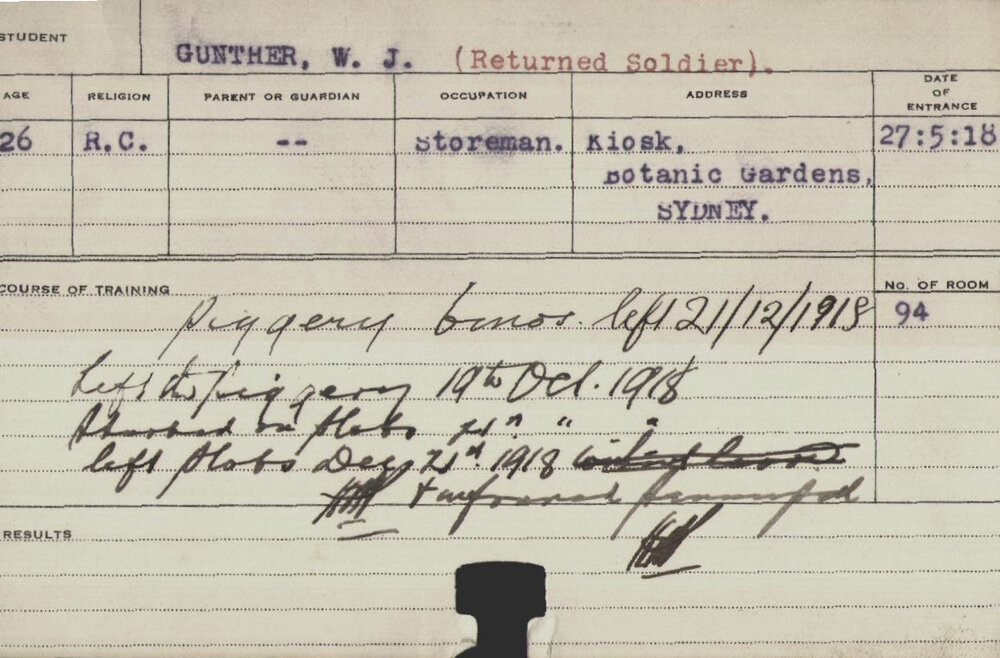 STUDENT
GUNTHER, W. J. (Returned Soldier).
AGE RELIGION PARENT OR GUARDIAN OCCUPATION ADDRESS DATE OF ENTRANCE
26 R.C. -- Storeman. Kiosk, 27:5:18
Botanic Gardens,
SYDNEY.
COURSE OF TRAINING No. OF ROOM
94
piggery 6 mos. left 21/12/1918
Left the piggery 19th Oct. 1918
on plots 21st " "
left plots Dec 21st 1918
RESULTS